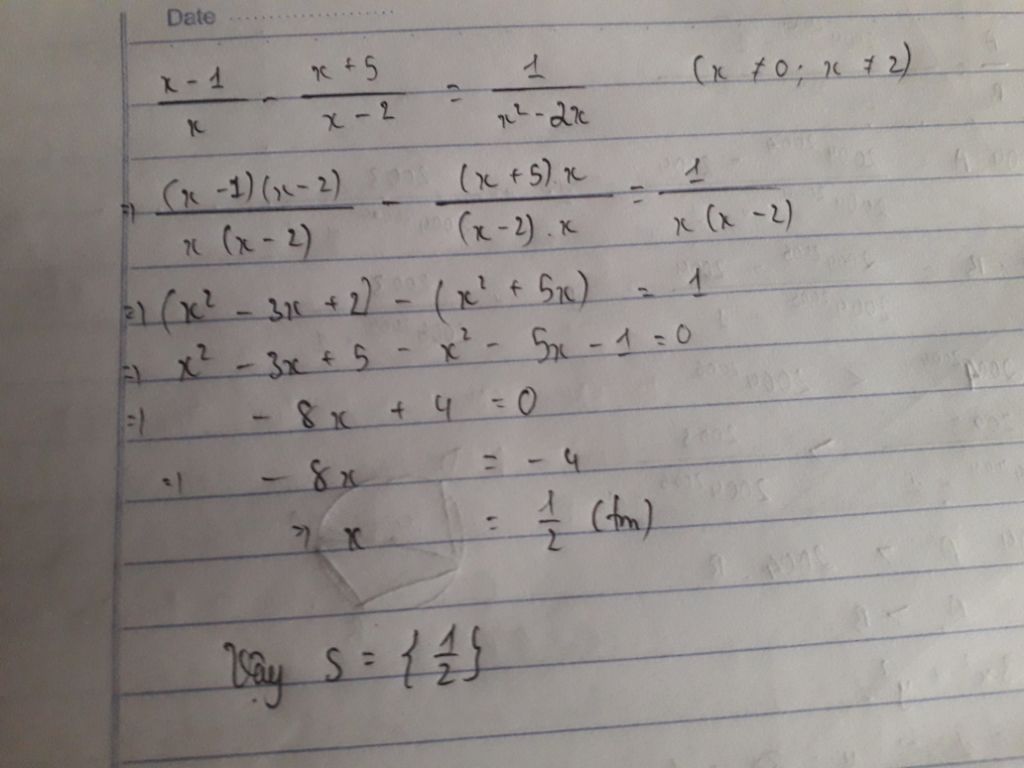 Date
x - 1 / x - x + 5 / x - 2 = 1 / x² - 2x (x ≠ 0; x ≠ 2)
=) (x - 1)(x - 2) / x (x - 2) - (x + 5).x / (x - 2).x = 1 / x (x - 2)
=) (x² - 3x + 2) - (x² + 5x) = 1
=) x² - 3x + 5 - x² - 5x - 1 = 0
=) - 8x + 4 = 0
=) - 8x = - 4
=) x = 1/2 (tm)
Vậy S = {1/2}